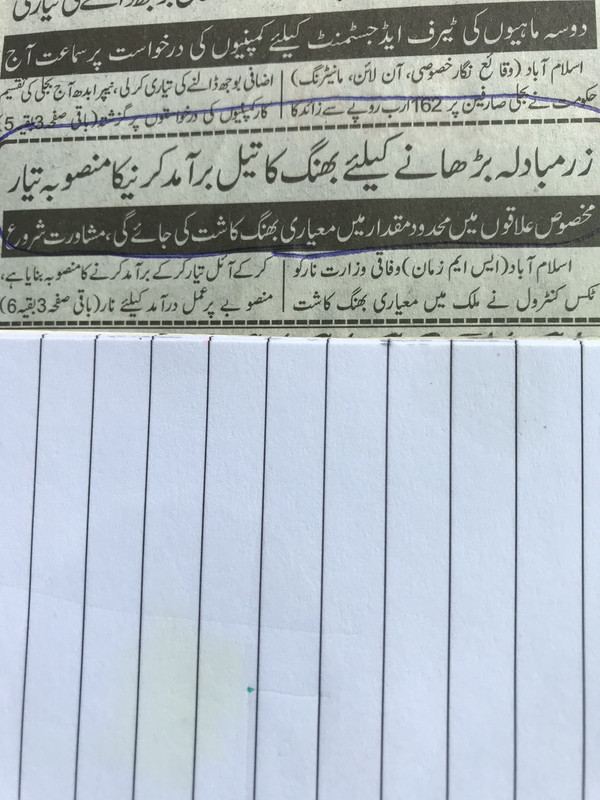 دوسہ ماہیوں کی ٹیرف ایڈجسٹمنٹ کیلئے کمپنیوں کی درخواست پر سماعت آج
اسلام آباد (وقائع نگار خصوصی، آن لائن، مانیٹرنگ)
حکومت نے بجلی صارفین پر 162 ارب روپے سے زائد کا
اضافی بوجھ ڈالنے کی تیاری کرلی، نیپرا بدھ آج بجلی کی تقسیم
کار کمپنیوں کی درخواستوں پر (باقی صفحہ 3 بقیہ 5)
زرمبادلہ بڑھانے کیلئے بھنگ کا تیل برآمد کرنیکا منصوبہ تیار
مخصوص علاقوں میں محدود مقدار میں معیاری بھنگ کاشت کی جائے گی، مشاورت شروع
اسلام آباد (ایس ایم زمان) وفاقی وزارت نارکو
ٹکس کنٹرول نے ملک میں معیاری بھنگ کاشت
کرکے آئل تیار کرکے برآمد کرنے کا منصوبہ بنایا ہے،
منصوبے پر عمل درآمد کیلئے نار (باقی صفحہ 3 بقیہ 6)